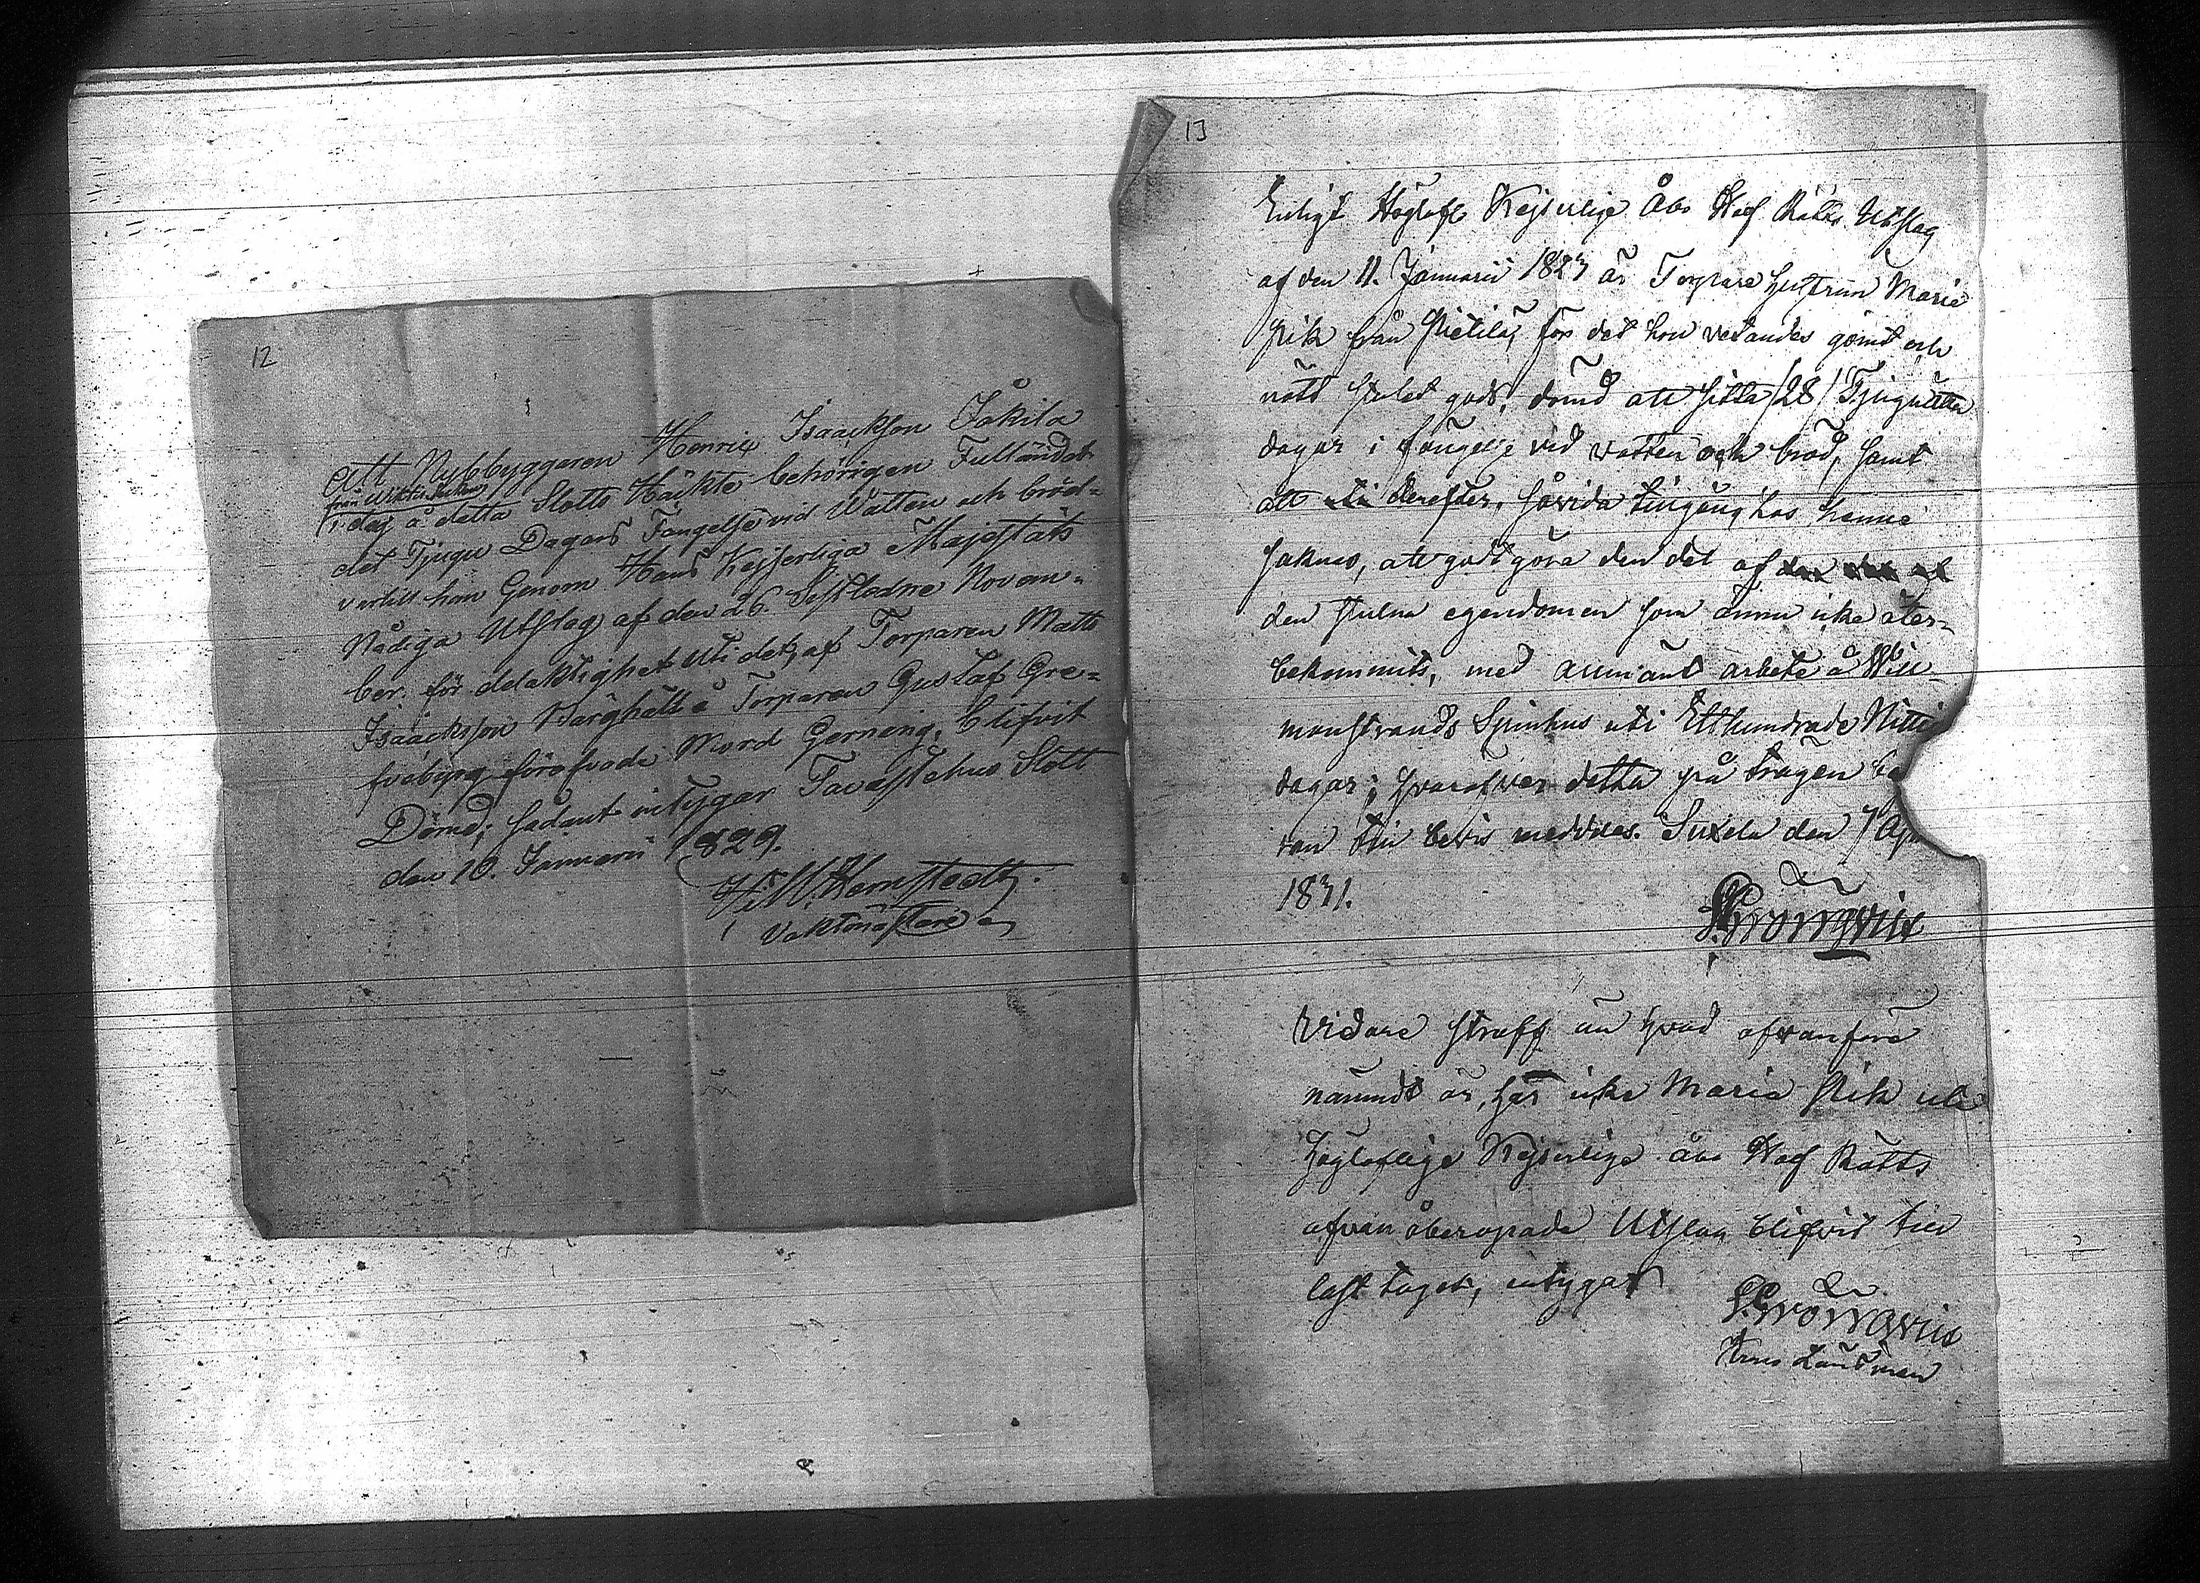 12
Att Nybbyggaren Henrix Isaacksson Jokila
från Wiktis Sochen
i dag å detta Slotts Häkte behörigen Fulländat
det Tjugu Dagars Fängelse vid Watten och bröd-
vartill han Genom Hans Kejserliga Majestäts
Nådiga Utslag af den 26. Sistledne Novem-
ber för delaktighet uti det, af Torparen Matts
Isaacksson å Torparen Gustaf Gre-
föröfvade Mord Gerning, blifvit
Dömd; sådant intygar Tavastehus Slott
den 10. Januarii 1829.
Hernstedt.
Vaktmästare
13
Enligt Höglofl Kejserlige Åbo Hof Rätts Utslag
af den 11. Januarii 1823 är Torpare hustrun Maria
från Pietilä, för det hon vetandes gömt och
nött stulet gods, dömd att sitta /28/ Tjuguåtta
dagar i fängelse vid vatten och bröd, samt
att derefter, såvida tillgång hos henne
saknas, att godtgöra den del af
den stulna egendomen som ännu icke åter-
bekommits, med allmänt arbete å Will-
manstrands Spinhus uti Etthundrade Nittio
dagar; hvaröfver detta på trägen be
ran till bevis meddelas. Suxela den 7 Apr
1831.
Vidare straff än hvad ofvanföre
nämndt är, har icke Maria uti
Högloflige Kejserlige Åbo Hof Rätts
ofvan åberopade Utslag blifvit till
last taget, intygar
Krono Länsman